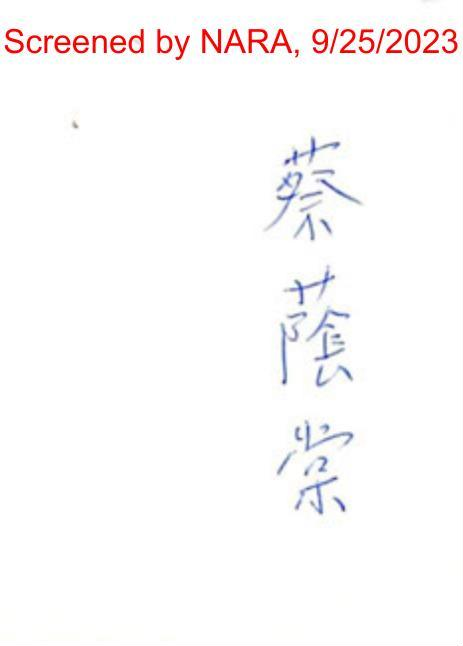 Screened by NARA, 9/25/2023
蔡蔭棠